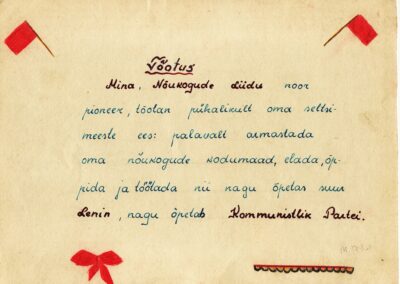 Tõotus
Mina, Nõukogude Liidu noor
pioneer, tõotan pühalikult oma seltsi-
meeste ees: palavalt armastada
oma nõukogude kodumaad, elada, õp-
pida ja töötada nii nagu õpetas suur
Lenin, nagu õpetab Kommunistlik Partei.